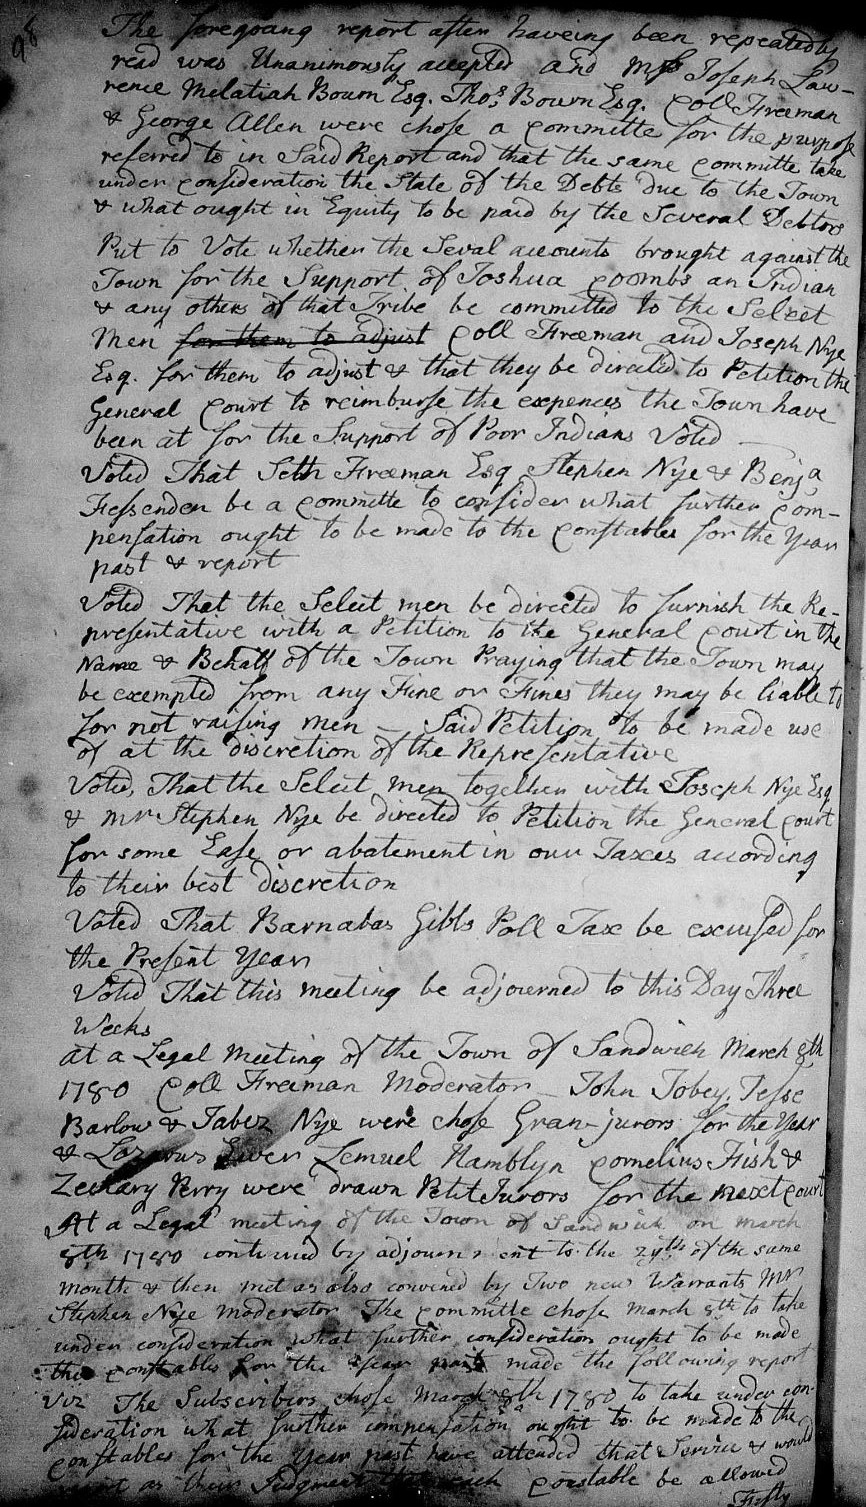 98
The foregoang report after haveing been repeatedly
read was Unanimously accepted and Mrss Joseph Law-
rence Melatiah Bourn Esq. Thos Bourn Esq. Coll Freeman
& George Allen were chose a committe for the purpose
referred to in Said Report and that the same committe take
under consideration the State of the Debts due to the Town
& what ought in Equity to be paid by the Several Debtors
Put to Vote whether the Seval accounts brought against the
Town for the Support of Joshua Coombs an Indian
& any others of that Tribe be committed to the Select
Men for them to adjust Coll Freeman and Joseph Nye
Esq. for them to adjust & that they be directed to Petition the
General Court to reimburse the expences the Town have
been at for the Support of Poor Indians Voted
Voted That Seth Freeman Esq Stephen Nye & Benja
Fessenden be a committe to consider what further com-
pensation ought to be made to the constables for the Year
past & report
Voted That the Select men be directed to furnish the Re-
presentative with a Petition to the General Court in the
Name & Behalf of the Town Praying that the Town may
be exempted from any Fine or Fines they may be liable to
for not raising men — Said Petition to be made use
of at the discretion of the Representative
Voted, That the Select men together with Joseph Nye Esq
& Mr Stephen Nye be directed to Petition the General Court
for some Ease or abatement in our Taxes according
to their best discretion
Voted That Barnabas Gibbs Poll Tax be excused for
the Present Year
Voted That this meeting be adjourned to this Day Three
Weeks
at a Legal Meeting of the Town of Sandwich March 8th
1780 Coll Freeman Moderator — John Tobey, Jesse
Barlow & Jabez Nye were chose Gran-jurors for the Year
& Lazarus Ewer Lemuel Hamblyn Cornelius Fish &
Zecary Perry were drawn Petit Jurors for the next Court
At a Legal meeting of the Town of Sandwich on march
8th 1780 continued by adjournment to the 29th of the same
month & then met as also convened by Two new Warrants Mr
Stephen Nye Moderator The Committe chose March 8th to take
under consideration what further consideration ought to be made
the constables for the year past made the following report
viz The Subscribers chose March 8th 1780 to take under con-
sideration what further compensation ought to be made to the
constables for the Year past have attended that Service & would
as their Judgment that each constable be allowed
Fifty